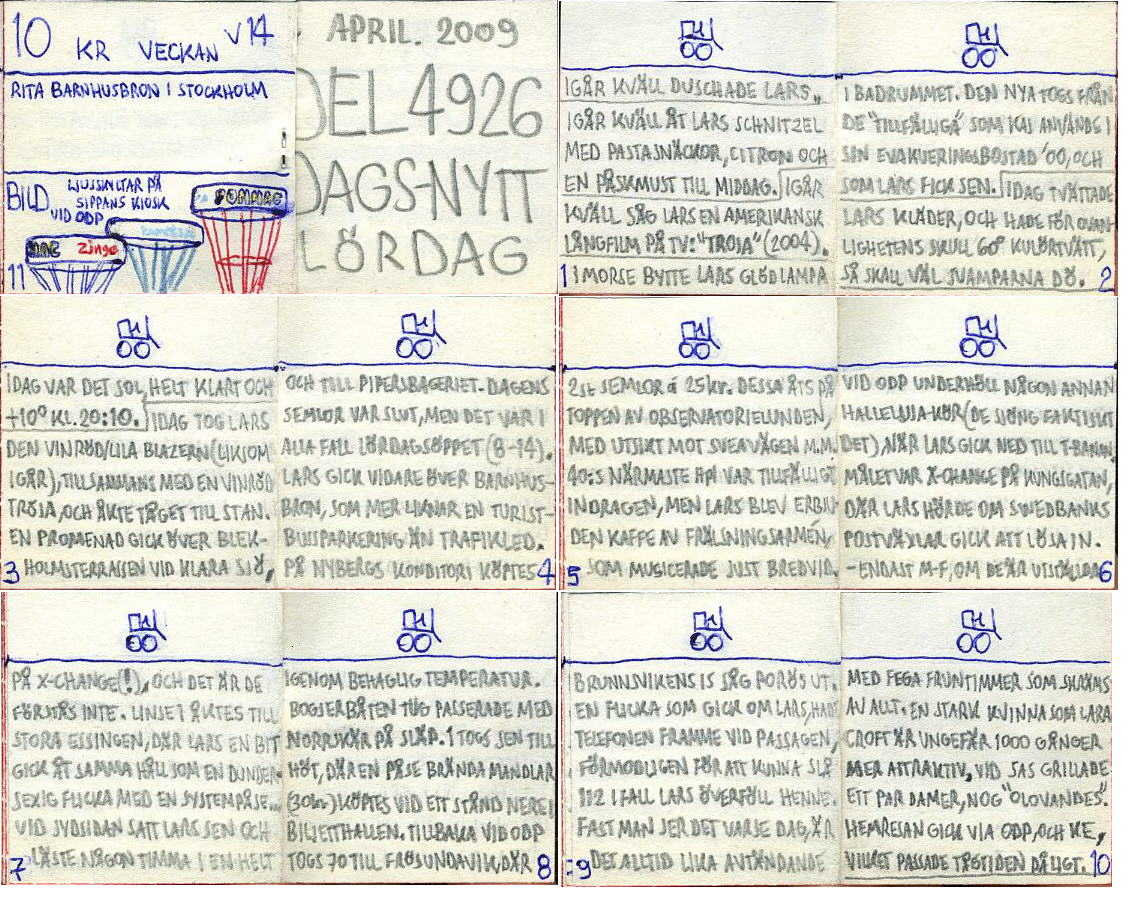 10 KR VECKAN V14
RITA BARNHUSBRON I STOCKHOLM
BILD LJUSSKYLTAR PÅ
SIPPANS KIOSK
VID ODP
POMMAC
Zingo
11
APRIL. 2009
DEL 4926
DAGS-NYTT
LÖRDAG
IGÅR KVÄLL DUSCHADE LARS.
IGÅR KVÄLL ÅT LARS SCHNITZEL
MED PASTASNÄCKOR, CITRON OCH
EN PÅSKMUST TILL MIDDAG. IGÅR
KVÄLL SÅG LARS EN AMERIKANSK
LÅNGFILM PÅ TV: "TROJA" (2004).
I MORSE BYTTE LARS GLÖDLAMPA
1
I BADRUMMET. DEN NYA TOGS FRÅN
DE "TILLFÄLLIGA" SOM KAJ ANVÄNDE I
SIN EVAKUERINGSBOSTAD '00, OCH
SOM LARS FICK SEN. IDAG TVÄTTADE
LARS KLÄDER, OCH HADE FÖR OVAN-
LIGHETENS SKULL 60° KULÖRTVÄTT,
SÅ SKALL VÄL SVAMPARNA DÖ.
2
IDAG VAR DET SOL, HELT KLART OCH
+10° KL. 20:10. IDAG TOG LARS
DEN VINRÖD/LILA BLAZERN (LIKSOM
IGÅR), TILLSAMMANS MED EN VINRÖD
TRÖJA, OCH ÅKTE TÅGET TILL STAN.
EN PROMENAD GICK ÖVER BLEK-
HOLMSTERRASSEN VID KLARA SJÖ,
3
OCH TILL PIPERSBAGERIET. DAGENS
SEMLOR VAR SLUT, MEN DET VAR I
ALLA FALL LÖRDAGSÖPPET (8-14).
LARS GICK VIDARE ÖVER BARNHUS-
BRON, SOM MER LIKNAR EN TURIST-
BUSSPARKERING ÄN TRAFIKLED.
PÅ NYBERGS KONDITORI KÖPTES
4
2st SEMLOR á 25kr. DESSA ÅTS PÅ
TOPPEN AV OBSERVATORIELUNDEN,
MED UTSIKT MOT SVEAVÄGEN M.M.
40:S NÄRMASTE HPL VAR TILLFÄLLIGT
INDRAGEN, MEN LARS BLEV ERBJU-
DEN KAFFE AV FRÄLSNINGSARMÉN,
SOM MUSICERADE JUST BREDVID.
5
VID ODP UNDERHÖLL NÅGON ANNAN
HALLELUJA-KÖR (DE SJÖNG FAKTISKT
DET), NÄR LARS GICK NED TILL T-BANAN.
MÅLET VAR X-CHANGE PÅ KUNGSGATAN,
DÄR LARS HÖRDE OM SWEDBANKS
POSTVÄXLAR GICK ATT LÖSA IN.
-ENDAST M-F, OM DE ÄR UTSTÄLLDA
6
PÅ X-CHANGE(!), OCH DET ÄR DE
FÖRSTÅS INTE. LINJE 1 ÅKTES TILL
STORA ESSINGEN, DÄR LARS EN BIT
GICK ÅT SAMMA HÅLL SOM EN DUNDER-
SEXIG FLICKA MED EN SYSTEMPÅSE...
VID SYDSIDAN SATT LARS SEN OCH
LÄSTE NÅGON TIMMA I EN HELT
7
IGENOM BEHAGLIG TEMPERATUR.
BOGSERBÅTEN TUG PASSERADE MED
NORRSKÄR PÅ SLÄP. 1 TOGS SEN TILL
HÖT, DÄR EN PÅSE BRÄNDA MANDLAR
(30kr) KÖPTES VID ETT STÅND NERE I
BILJETTHALLEN. TILLBAKA VID ODP
TOGS 70 TILL FRÖSUNDAVIK, DÄR
8
BRUNNSVIKENS IS SÅG PORÖS UT.
EN FLICKA SOM GICK OM LARS, HADE
TELEFONEN FRAMME VID PASSAGEN,
FÖRMODLIGEN FÖR ATT KUNNA SLÅ
112 IFALL LARS ÖVERFÖLL HENNE.
FAST MAN SER DET VARJE DAG, ÄR
DET ALLTID LIKA ANTÄNDANDE
9
MED FEGA FRUNTIMMER SOM SKRÄMS
AV ALLT. EN STARK KVINNA SOM LARA
CROFT ÄR UNGEFÄR 1000 GÅNGER
MER ATTRAKTIV. VID SAS GRILLADE
ETT PAR DAMER, NOG "OLOVANDES".
HEMRESAN GICK VIA ODP, OCH KE,
VILKET PASSADE TÅGTIDEN DÅLIGT.
10